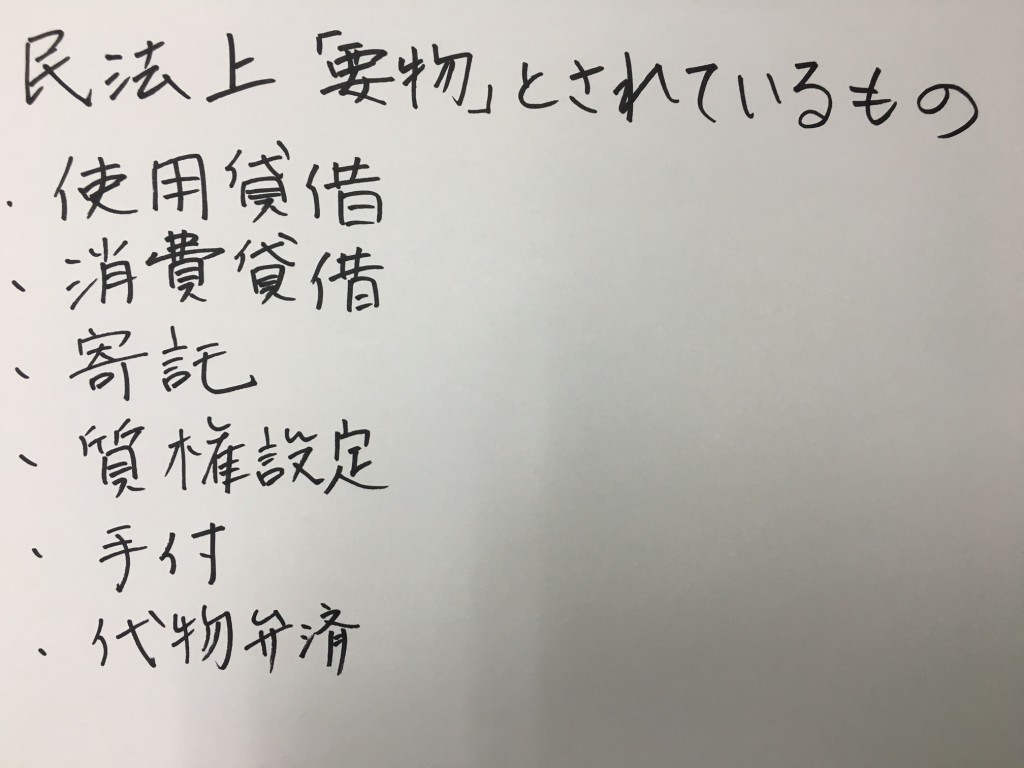 民法上「要物」とされているもの
・使用貸借
、消費貸借
、寄託
、質権設定
、手付
、代物弁済